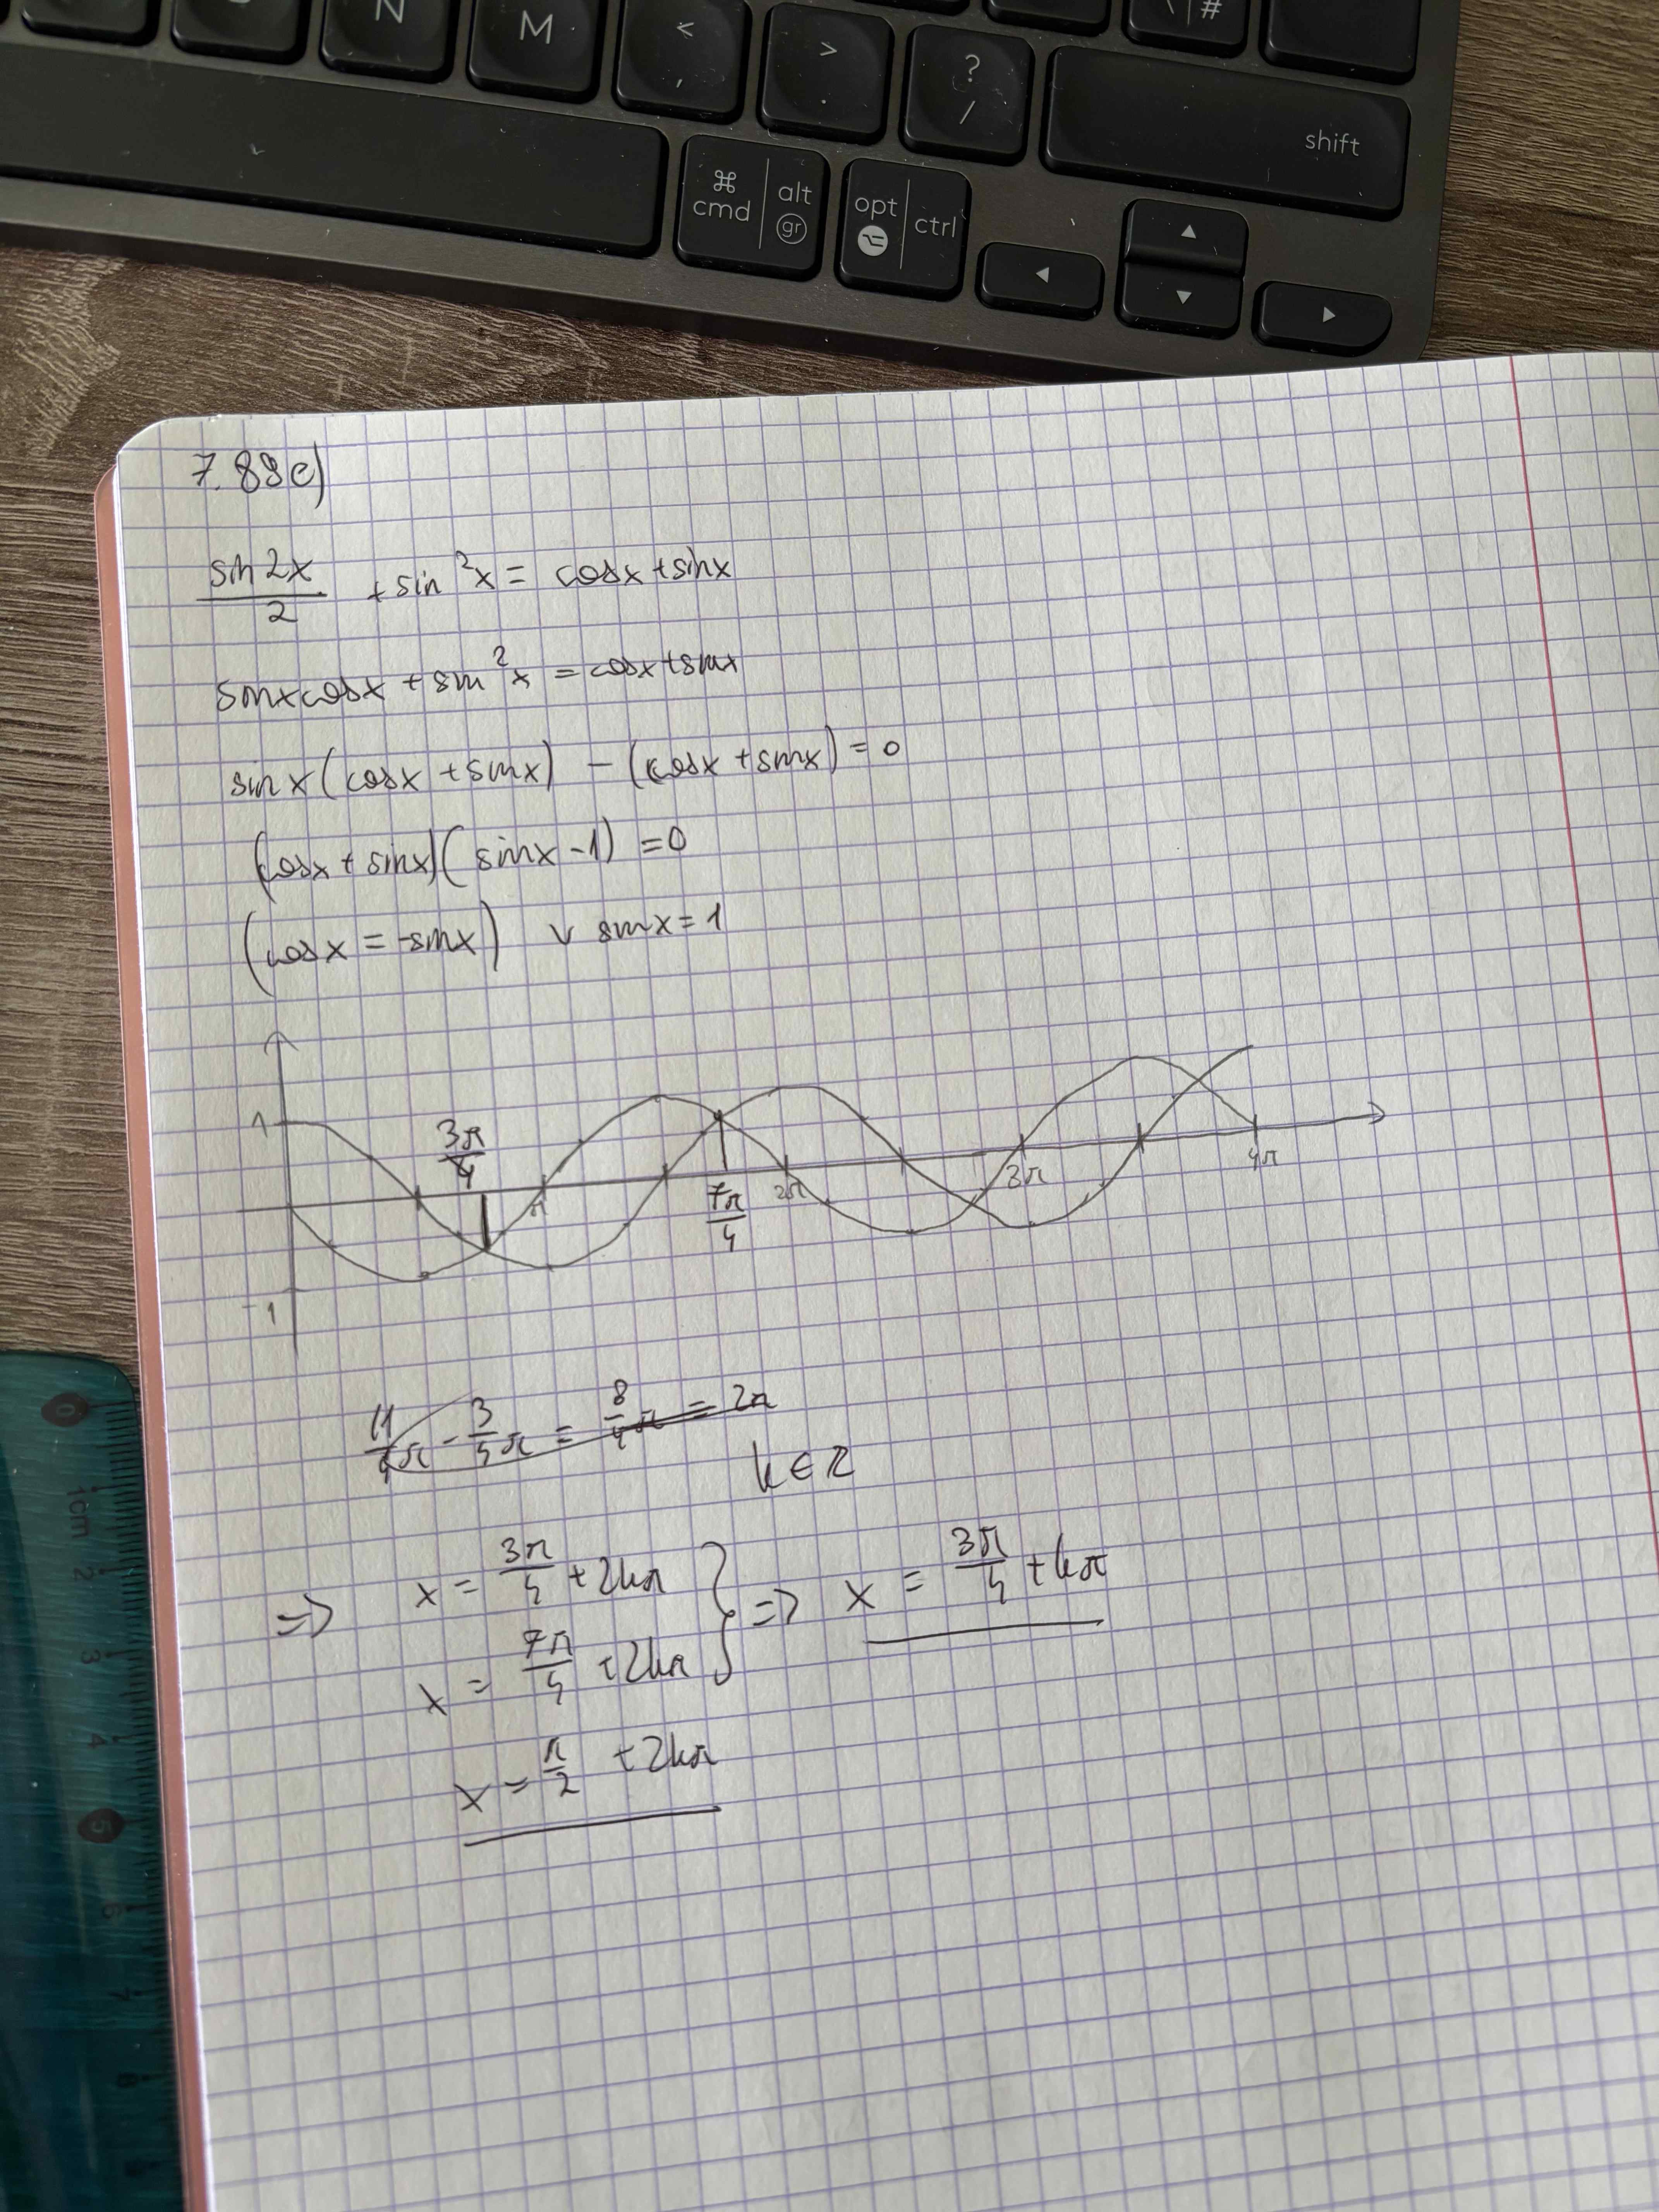 N
M
<
,
>
.
?
/
\ | #
shift
⌘
cmd
alt
gr
opt
⌥
ctrl
◄
▲
▼
►
7.88e)
sin2x/2 + sin²x = cosx + sinx
sinxcosx + sin²x = cosx + sinx
sinx(cosx + sinx) - (cosx + sinx) = 0
(cosx + sinx)(sinx - 1) = 0
(cosx = -sinx) ∨ sinx = 1
1
3π/4
π
7π/4
2π
3π
4π
-1
11/4π - 3/4π = 8/4π = 2π
k ∈ ℤ
⇒ x = 3π/4 + 2kπ } ⇒ x = 3π/4 + kπ
x = 7π/4 + 2kπ
x = π/2 + 2kπ
0
1cm
2
3
4
5
6
7
8